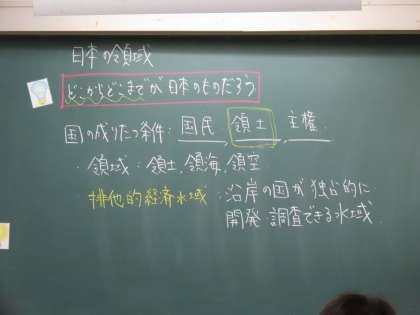 日本の領域
どこからどこまでが日本のものだろう
国の成りたつ条件: 国民 領土 主権.
・領域: 領土,領海,領空
排他的経済水域: 沿岸の国が独占的に
開発・調査できる水域.